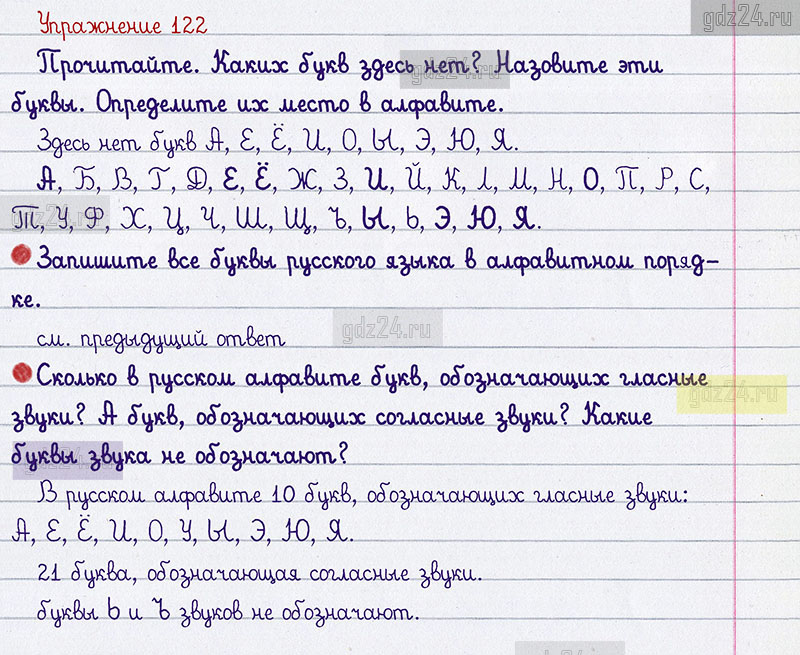 gdz24.ru
Упражнение 122
Прочитайте. Каких букв здесь нет? Назовите эти
буквы. Определите их место в алфавите.
Здесь нет букв А, Е, Ё, И, О, Ы, Э, Ю, Я.
А, Б, В, Г, Д, Е, Ё, Ж, З, И, Й, К, Л, М, Н, О, П, Р, С,
Т, У, Ф, Х, Ц, Ч, Ш, Щ, Ъ, Ы, Ь, Э, Ю, Я.
Запишите все буквы русского языка в алфавитном поряд-
ке.
см. предыдущий ответ
gdz24.ru
Сколько в русском алфавите букв, обозначающих гласные
gdz24.ru
звуки? А букв, обозначающих согласные звуки? Какие
буквы звука не обозначают?
В русском алфавите 10 букв, обозначающих гласные звуки:
А, Е, Ё, И, О, У, Ы, Э, Ю, Я.
21 буква, обозначающая согласные звуки.
буквы Ь и Ъ звуков не обозначают.